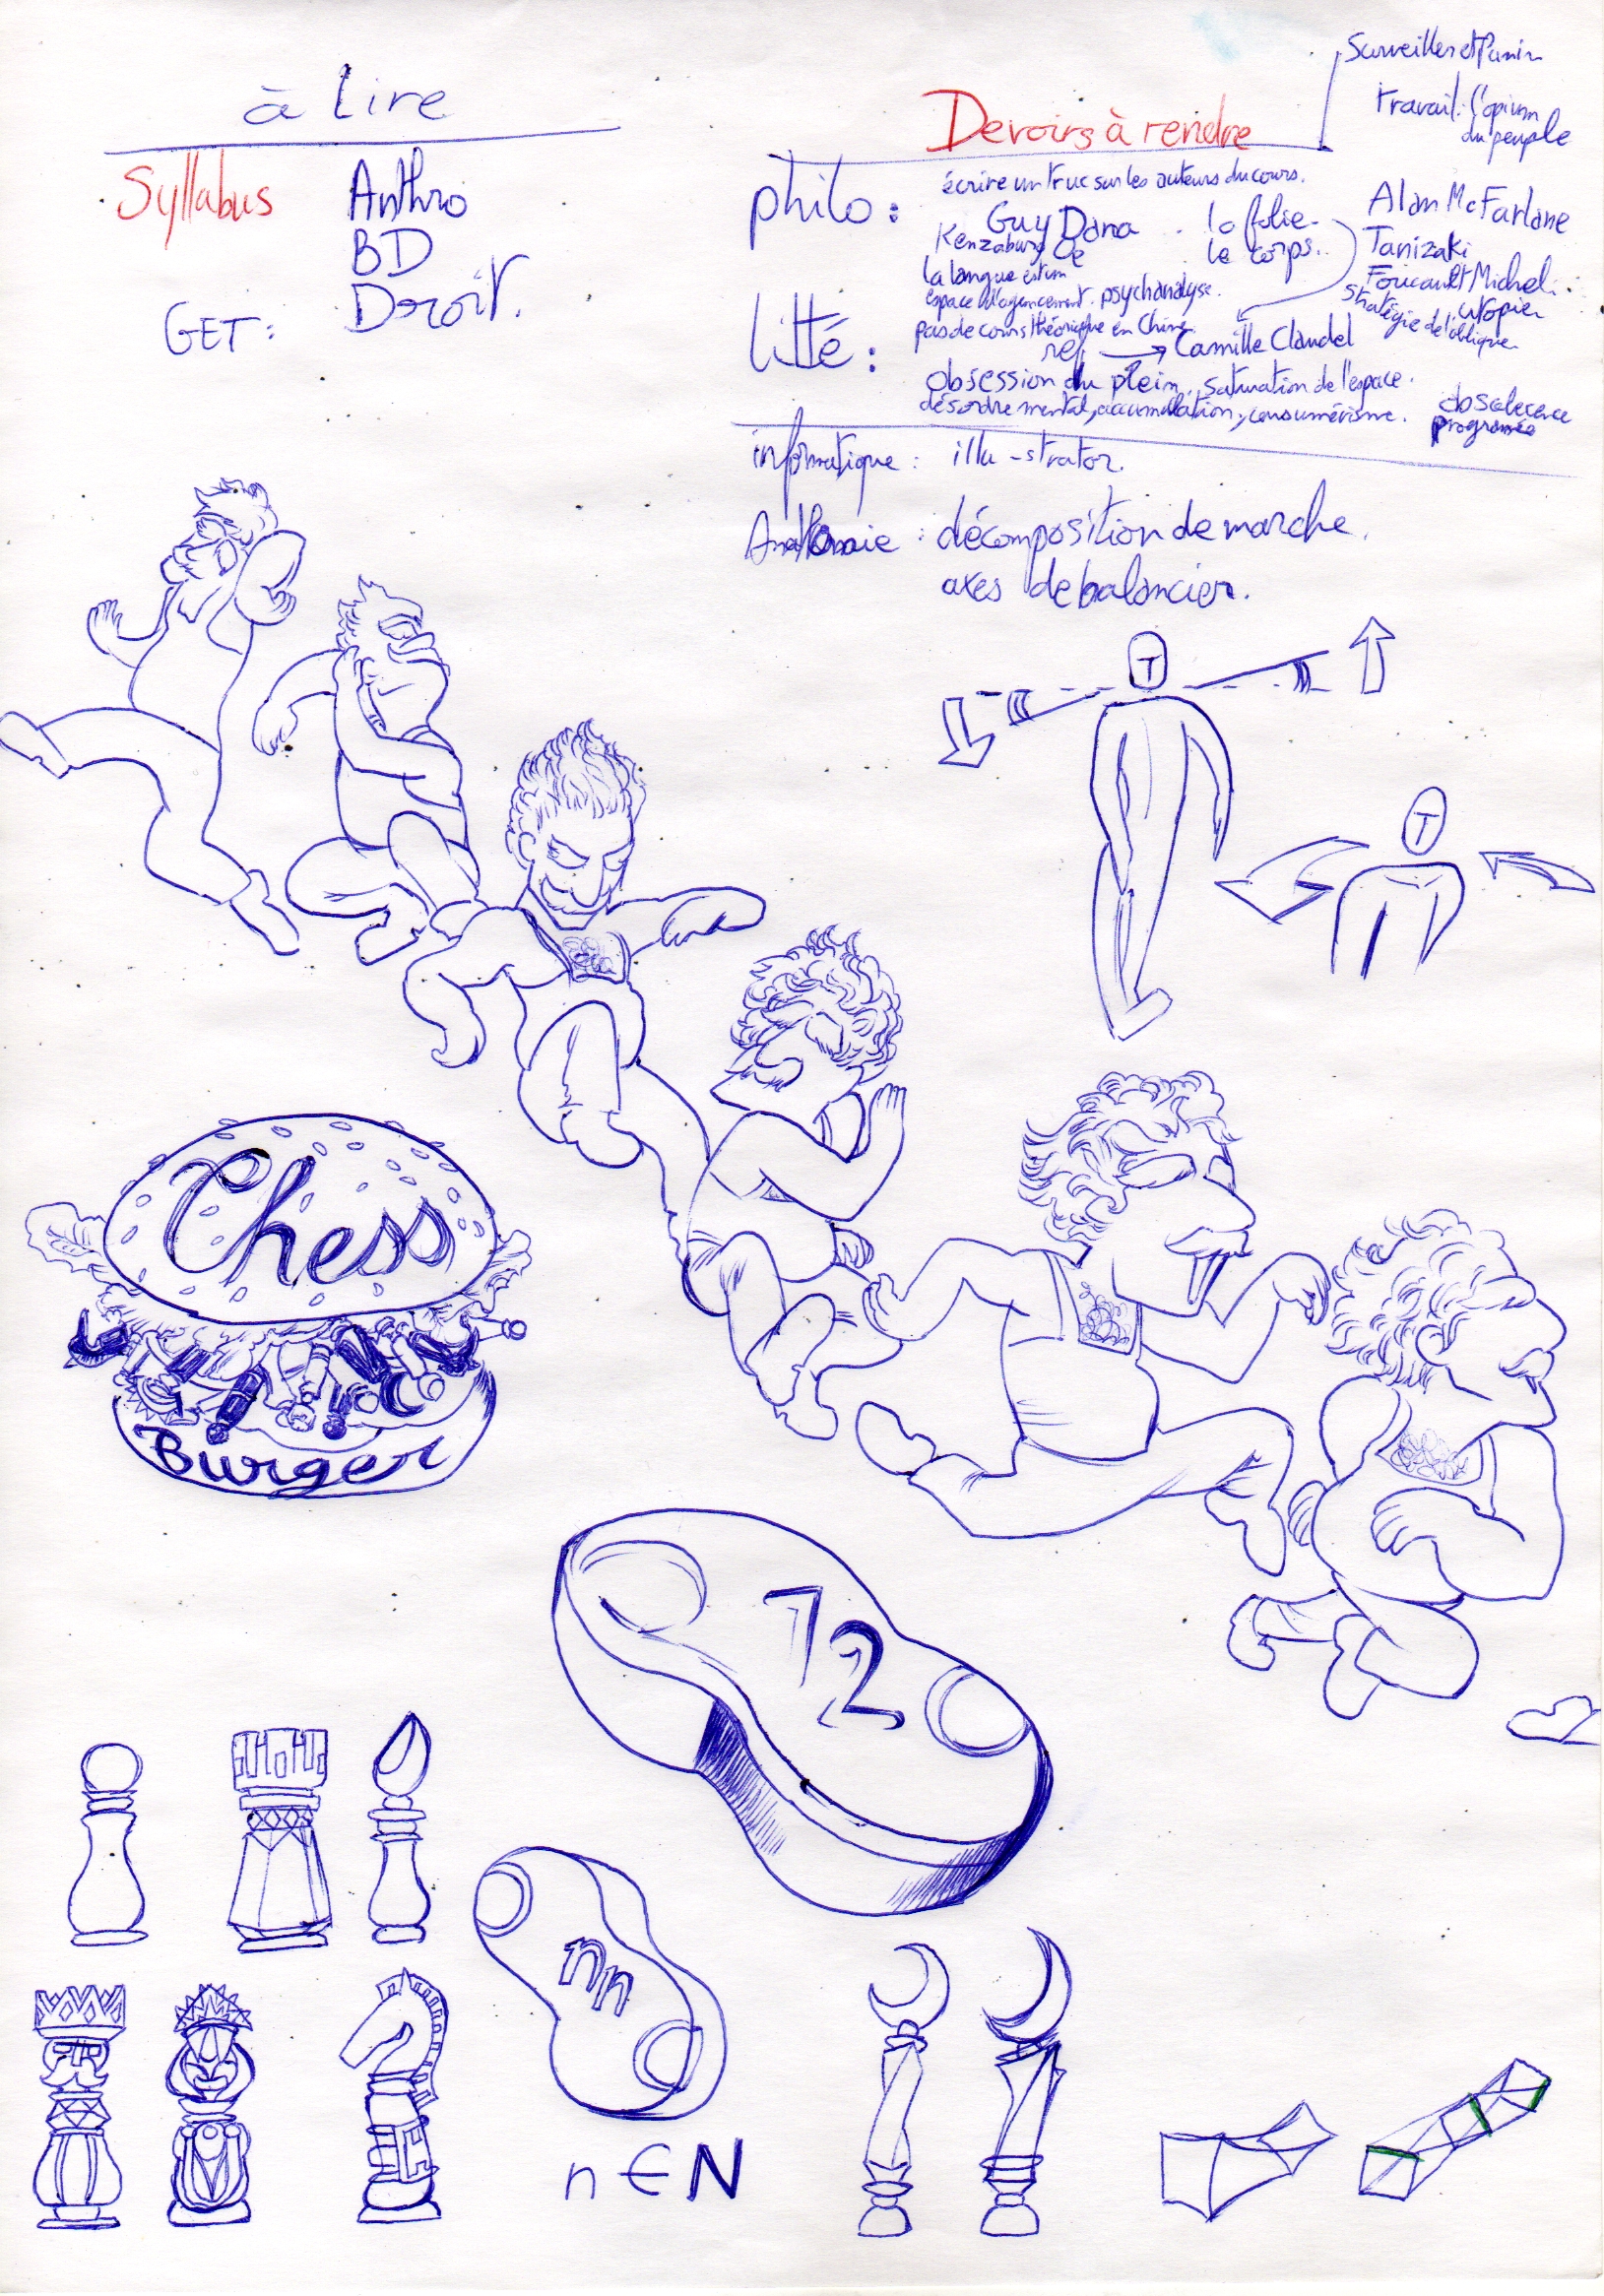 à Lire
Syllabus Anthro
BD
Droit.
GET:
Surveiller et Punir
travail: l'opium
du peuple
Devoirs à rendre
philo:
écrire un truc sur les auteurs du cours.
Guy Dana
la folie
le corps.
Kenzaburo Oe
la langue est un
espace d'agencement. psychanalyse.
pas de cours théorique en Chine.
Alan McFarlane
Tanizaki
Foucault Michel.
utopies
stratégie de l'oblique
Litté:
ref → Camille Claudel
obsession du plein, saturation de l'espace.
désordre mental, accumullation, consumérisme.
obsolecence
programée
informatique: illu-strator.
Anatomie: décomposition de marche.
axes de balancier.
T
T
Chess
Burger
72
nn
n ∈ N